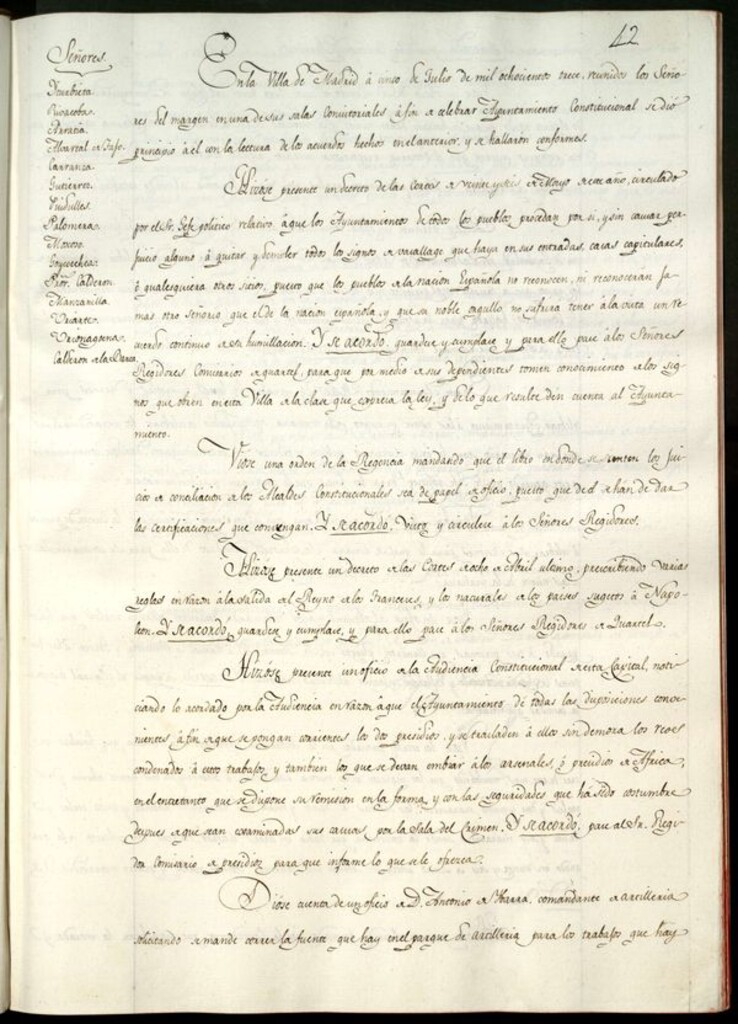 42
Señores.
Yturbieta.
Rivacoba.
Arratia.
Alvarez de Faso.
Carranza.
Gutierrez.
Palomera.
Moroso.
Goycoechea.
Pror. Calderon.
Manzanilla.
Uriarte.
Urionagoena.
Calderon de la Barca.
En la Villa de Madrid á cinco de Julio de mil ochocientos trece, reunidos los Seño-
res del margen en una de sus salas Consistoriales á fin de celebrar Ayuntamiento Constitucional se dió
principio á él con la lectura de los acuerdos hechos en el anterior, y se hallaron conformes.
Hizóse presente un decreto de las Cortes de veinte y seis de Mayo de este año, circulado
por el Sr. Gefe politico relativo á que los Ayuntamientos de todos los pueblos procedan por sí, y sin causar per-
juicio alguno á quitar y demoler todos los signos de vasallage que haya en sus entradas, casas capitulares,
ó qualesquiera otros sitios, puesto que los pueblos de la nacion Española no reconocen, ni reconoceran ja-
mas otro Señorio que el de la nacion española, y que su noble orgullo no sufriria tener á la vista un re-
cuerdo continuo de su humillacion. Y se acordó, guardese y cumplase y para ello pase á los Señores
Regidores Comisarios de quartel, para que por medio de sus dependientes tomen conocimiento de los sig-
nos que obren en esta Villa de la clase que expresa la ley, y de lo que resulte den cuenta al Ayunta-
miento.
Vióse una orden de la Regencia mandando que el libro en donde se sienten los jui-
cios de conciliacion de los Alcaldes Constitucionales sea de papel de oficio, puesto que de el se han de dar
las certificaciones que convengan. Y se acordó. Visto, y circulese á los Señores Regidores.
Hizóse presente un decreto de las Cortes de ocho de Abril ultimo, prescribiendo varias
reglas en razon á la salida del Reyno de los Franceses, y los naturales de los países sugetos á Napo-
leon. Y se acordó, guardese y cumplase, y para ello pase á los Señores Regidores de Quartel.
Hizóse presente un oficio de la Audiencia Constitucional de esta Capital, noti-
ciando lo acordado por la Audiencia en razon á que el Ayuntamiento dé todas las disposiciones conve-
nientes á fin de que se pongan corrientes los dos presidios, y se trasladen á ellos sin demora los reos
condenados á estos trabajos, y tambien los que se devan embiar á los arsenales, ó presidios de Africa,
en el entretanto que se dispone su remision en la forma, y con las seguridades que ha sido costumbre
despues de que sean examinadas sus causas, por la Sala del Crimen. Y se acordó, pase al Sr. Regi-
dor Comisario de presidios para que informe lo que se le ofrezca.
Dióse cuenta de un oficio de D. Antonio de Ybarra, comandante de artilleria
solicitando se mande correr la fuente que hay en el parque de artilleria para los trabajos que hay